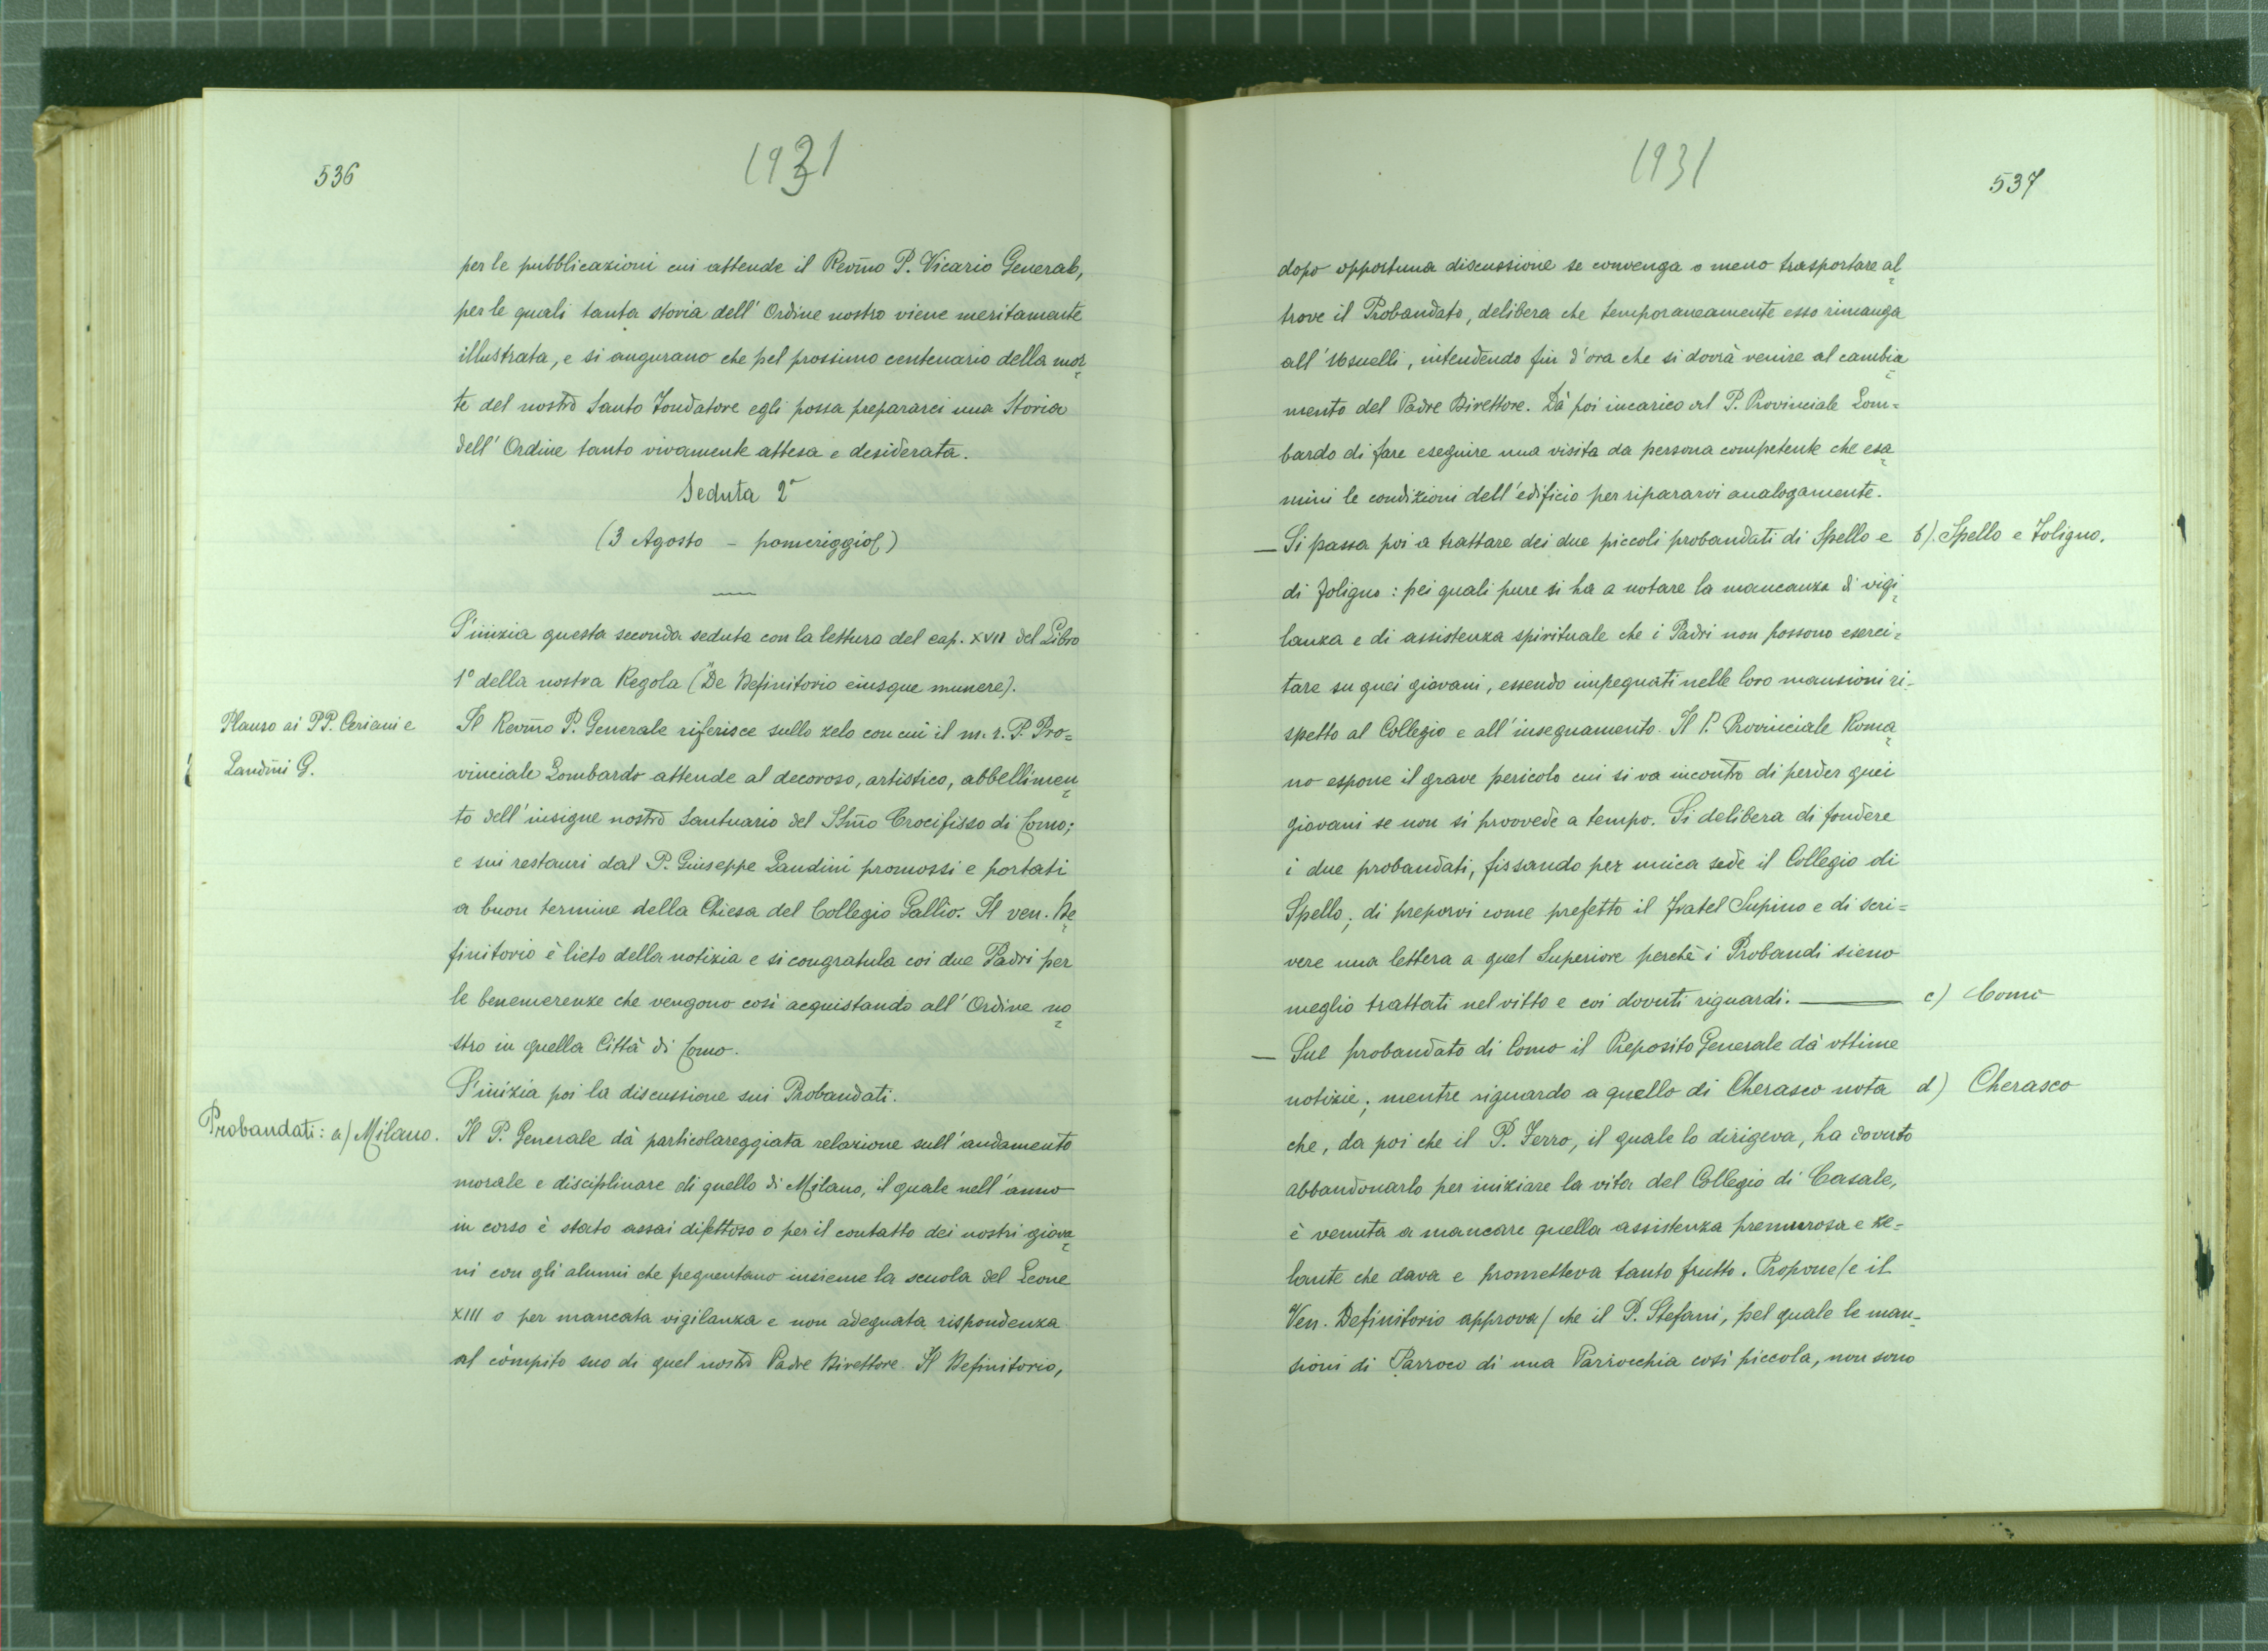 536
1931
per le pubblicazioni cui attende il Rev̄mo P. Vicario Generale,
per le quali tanta storia dell' Ordine nostro viene meritamente
illustrata, e si augurano che pel prossimo centenario della mor
te del nostro Santo Fondatore egli possa prepararci una Storia
dell' Ordine tanto vivamente attesa e desiderata.
Seduta 2ª
(3 Agosto - pomeriggio)
S'inizia questa seconda seduta con la lettura del cap. XVII del Libro
1° della nostra Regola ("De Definitorio eiusque munere).
Plauso ai PP. Ceriani e
Landini G.
Il Rev̄mo P. Generale riferisce sullo zelo con cui il m. r. P. Pro=
vinciale Lombardo attende al decoroso, artistico, abbellimen
to dell' insigne nostro Santuario del SSm̄o Crocifisso di Como;
e sui restauri dal P. Giuseppe Landini promossi e portati
a buon termine della Chiesa del Collegio Gallio. Il ven. De
finitorio è lieto della notizia e si congratula coi due Padri per
le benemerenze che vengono così acquistando all' Ordine no
stro in quella Città di Como.
S'inizia poi la discussione sui Probandati.
Probandati: a) Milano.
Il P. Generale dà particolareggiata relazione sull' andamento
morale e disciplinare di quello di Milano, il quale nell' anno
in corso è stato assai difettoso o per il contatto dei nostri giova
ni con gli alunni che frequentano insieme la scuola del Leone
XIII o per mancata vigilanza e non adeguata rispondenza
al còmpito suo di quel nostro Padre Direttore. Il Definitorio,
1931
537
dopo opportuna discussione se convenga o meno trasportare al
trove il Probandato, delibera che temporaneamente esso rimanga
all' Usuelli, intendendo fin d'ora che si dovrà venire al cambia
mento del Padre Direttore. Dà poi incarico al P. Provinciale Lom=
bardo di fare eseguire una visita da persona competente che esa
mini le condizioni dell' edificio per ripararvi analogamente.
— Si passa poi a trattare dei due piccoli probandati di Spello e
b). Spello e Foligno.
di Foligno: pei quali pure si ha a notare la mancanza di vigi
lanza e di assistenza spirituale che i Padri non possono eserci=
tare su quei giovani, essendo impegnati nelle loro mansioni ri-
spetto al Collegio e all' insegnamento. Il P. Provinciale Roma
no espone il grave pericolo cui si va incontro di perder quei
giovani se non si provvede a tempo. Si delibera di fondere
i due probandati, fissando per unica sede il Collegio di
Spello; di preporvi come prefetto il Fratel Supino e di scri=
vere una lettera a quel Superiore perchè i Probandi sieno
meglio trattati nel vitto e coi dovuti riguardi. —
c) Como
— Sul probandato di Como il Preposito Generale dà ottime
notizie; mentre riguardo a quello di Cherasco nota
d) Cherasco
che, da poi che il P. Ferro, il quale lo dirigeva, ha dovuto
abbandonarlo per iniziare la vita del Collegio di Casale,
è venuta a mancare quella assistenza premurosa e ze=
lante che dava e prometteva tanto frutto. Propone (e il
Ven. Definitorio approva) che il P. Stefani, pel quale le man-
sioni di Parroco di una Parrocchia così piccola, non sono